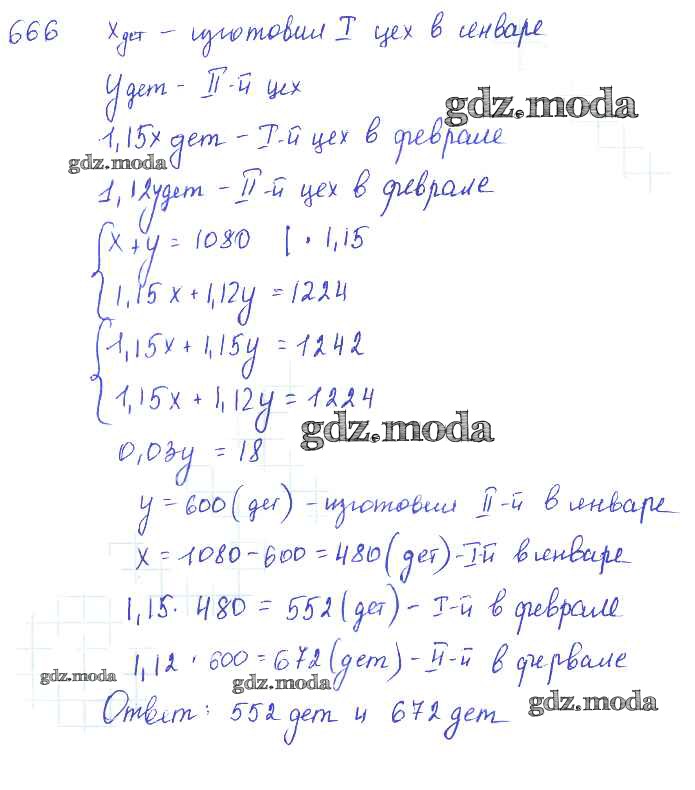 666 x дет – изготовил I цех в январе
y дет – II-й цех
gdz.moda
1,15x дет – I-й цех в феврале
gdz.moda
1,12y дет – II-й цех в феврале
x + y = 1080 | · 1,15
1,15x + 1,12y = 1224
1,15x + 1,15y = 1242
1,15x + 1,12y = 1224
gdz.moda
0,03y = 18
y = 600 (дет) – изготовил II-й в январе
x = 1080 – 600 = 480 (дет) – I-й в январе
1,15 · 480 = 552 (дет) – I-й в феврале
1,12 · 600 = 672 (дет) – II-й в фервале
gdz.moda
gdz.moda
gdz.moda
Ответ: 552 дет и 672 дет